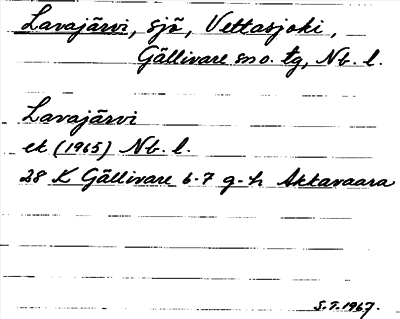 Lavajärvi, sjö, Vettasjoki,
Gällivare sn o. tg, Nb. l.
Lavajärvi
ek (1965) Nb. l.
28 K Gällivare 6-7 g-h Akkavaara
S.7.1967.